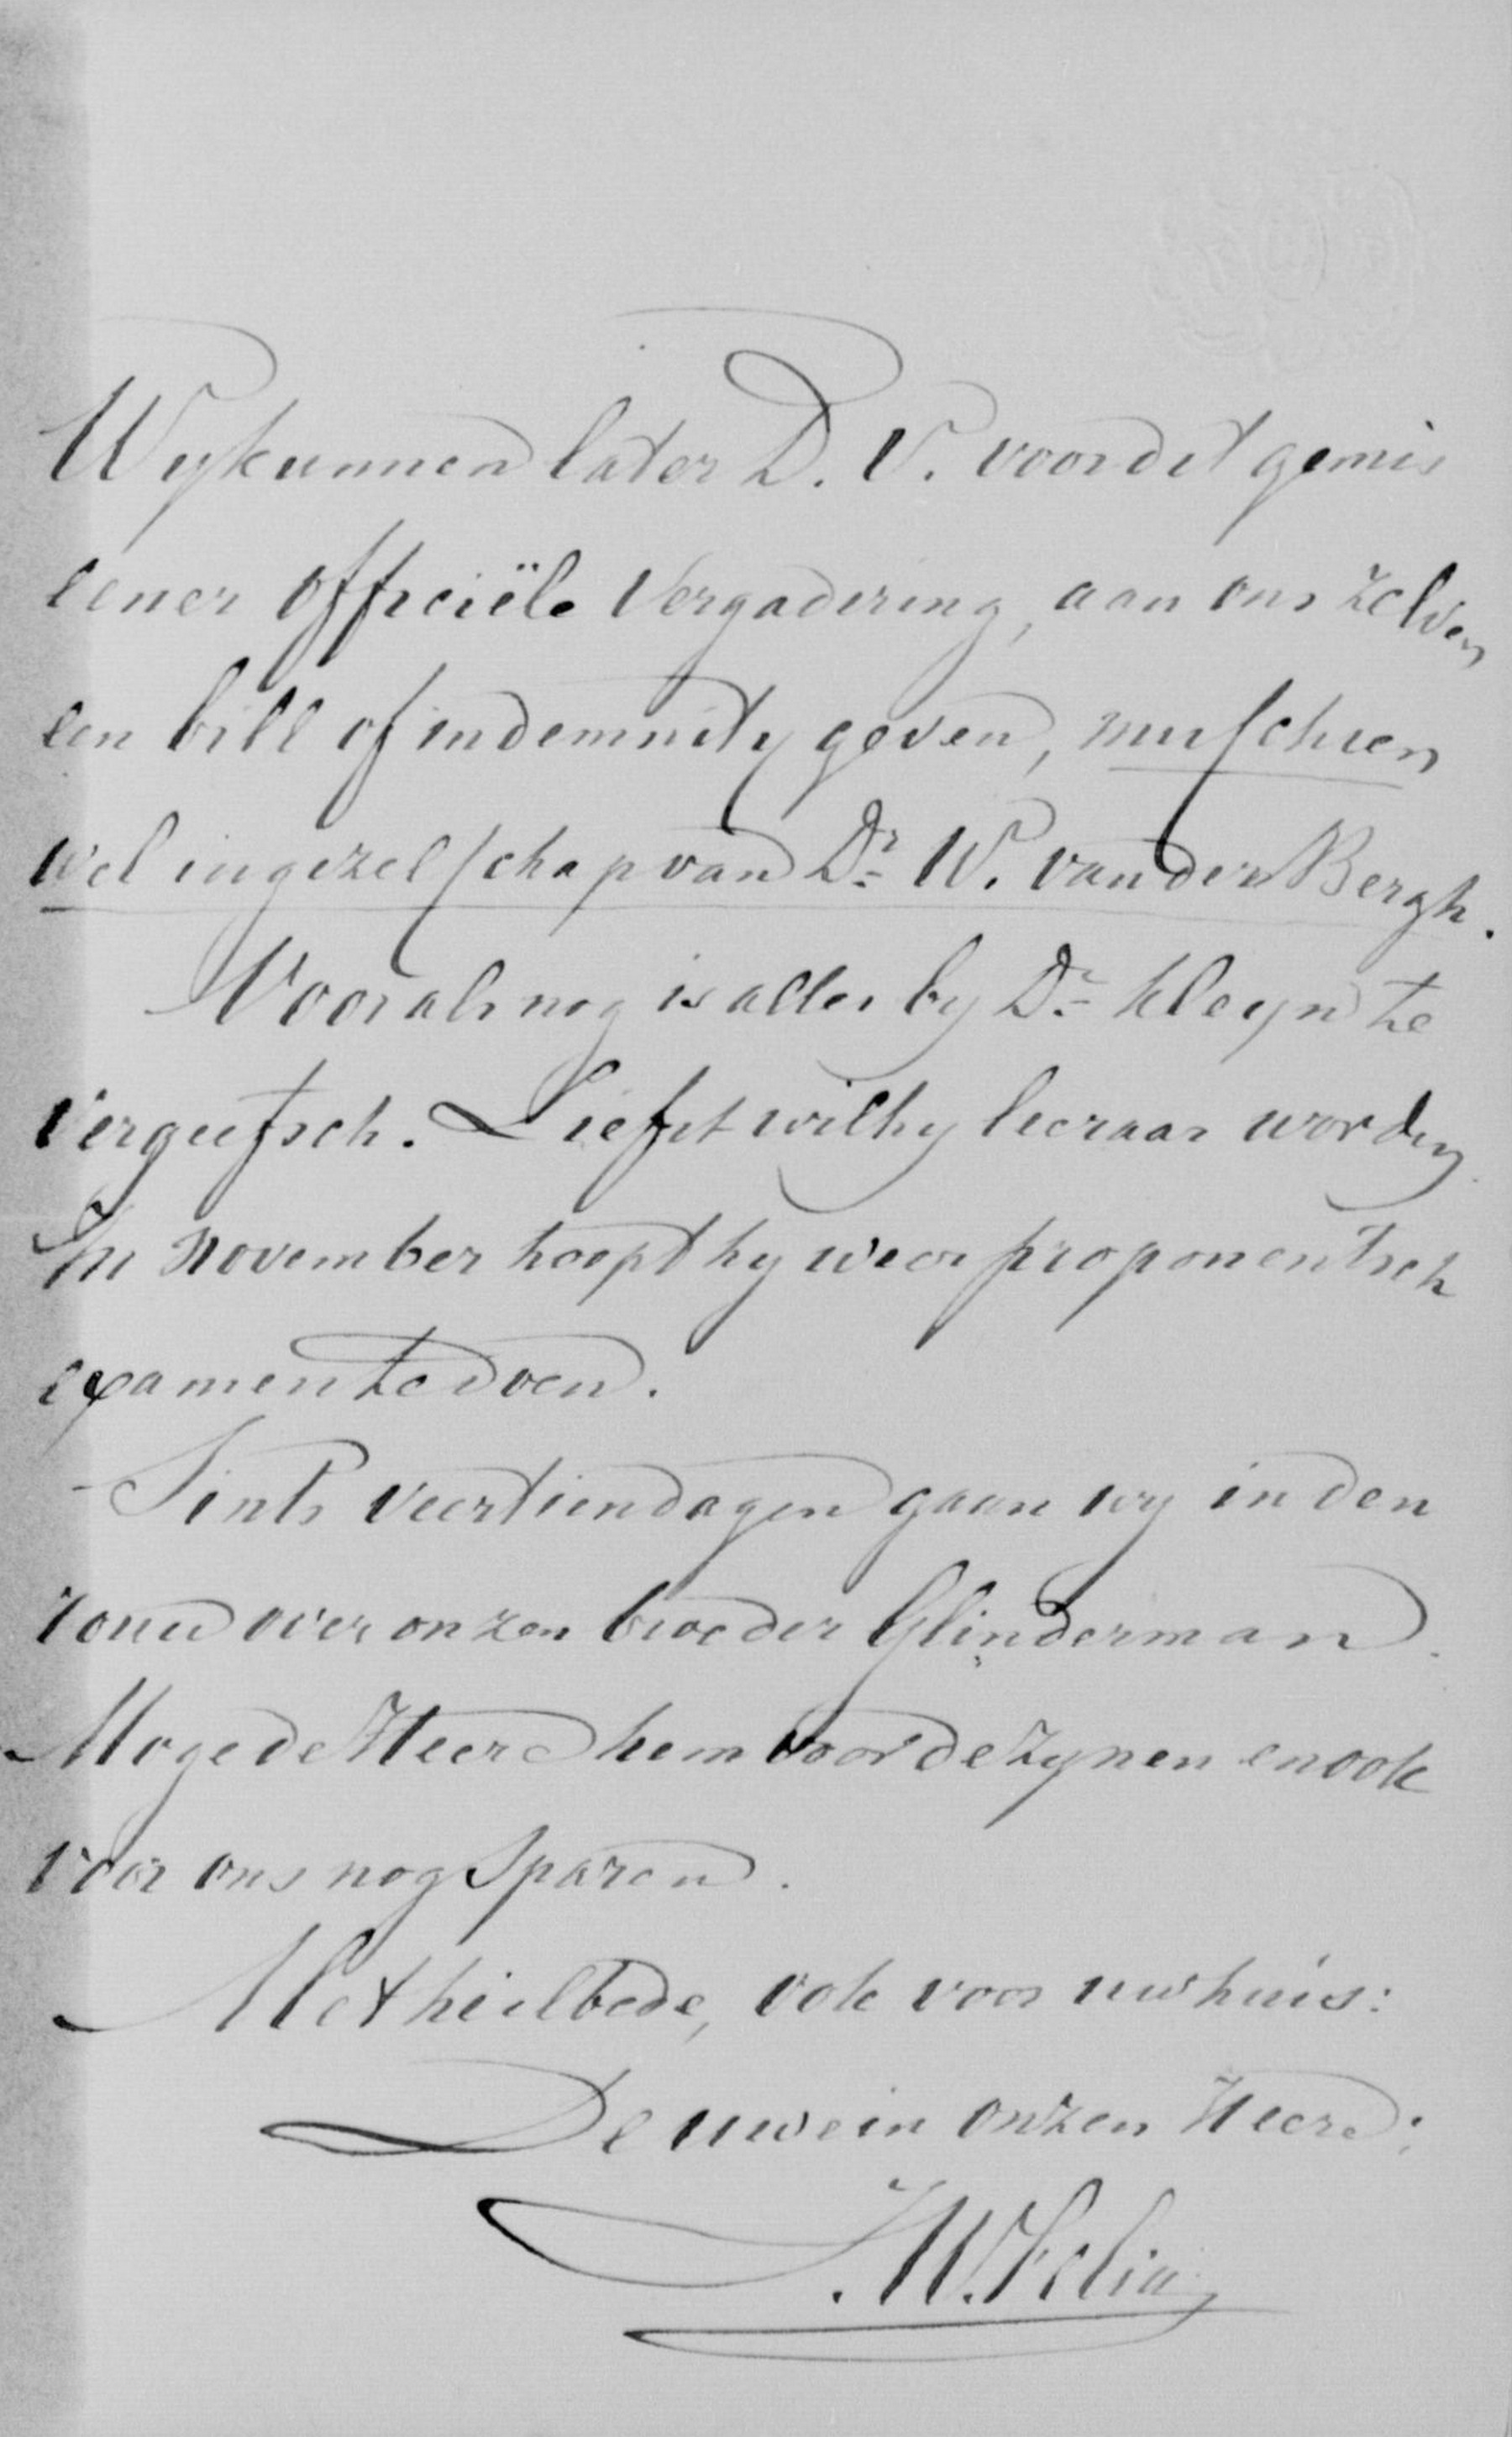 Wy kunnen later D. V. voor dit gemis
eener officiële Vergadering, aan ons zelven
een bill of indemnity geven, misschien
wel in gezelschap van Dr. W. van den Bergh.
Vooralsnog is alles by Dr. Kleyn te
vergeefsch. Liefst wil hy leeraar worden
In November hoopt hy weer proponentsch
examen te doen.
Sints veertien dagen gaan wy in den
rouw over onzen broeder Glinderman.
Moge de Heere hem voor de zynen en ook
voor ons nog sparen.
Met heilbede, ook voor uw huis:
De uwe in onzen Heere:
J. W. Felix